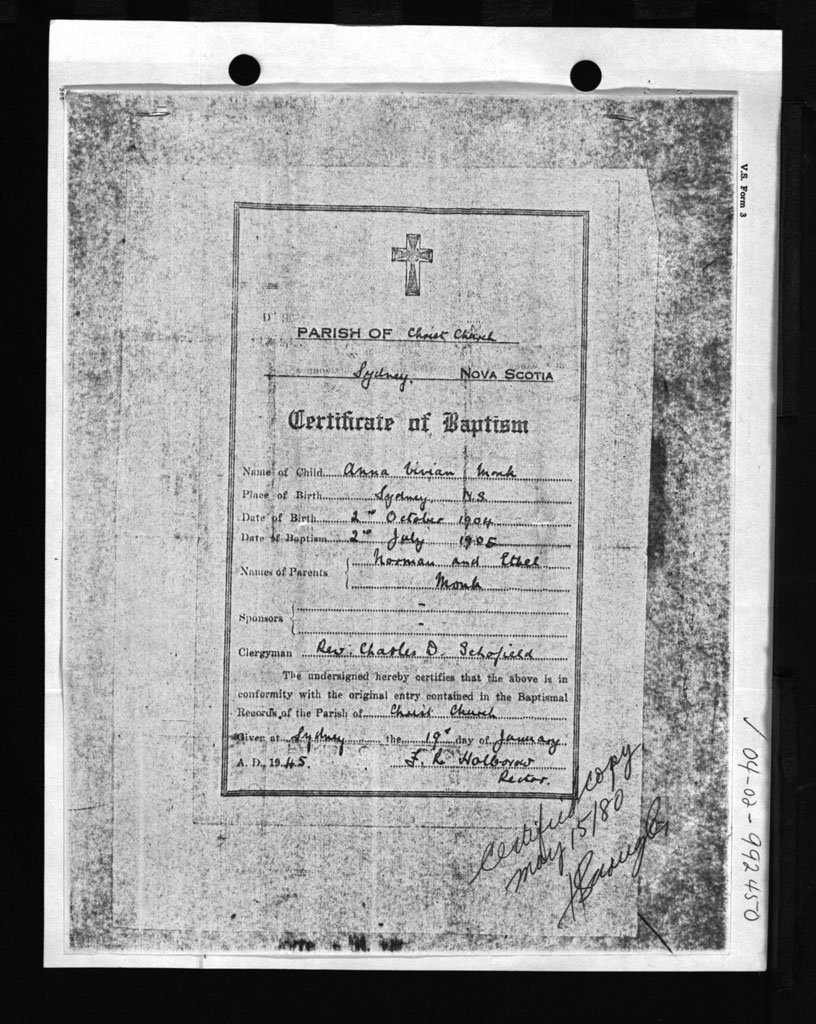 V.S. Form 3
PARISH OF Christ Church
Sydney. NOVA SCOTIA
Certificate of Baptism
Name of Child Anna Vivian Monk
Place of Birth Sydney N.S
Date of Birth 2nd October 1904
Date of Baptism 2nd July 1905
Names of Parents Norman and Ethel
Monk
Sponsors { -
-
Clergyman Rev. Charles D. Schofield
The undersigned hereby certifies that the above is in
conformity with the original entry contained in the Baptismal
Records of the Parish of Christ Church
Given at Sydney the 19th day of January
A. D., 1945. F. R. Holborow
Rector.
Certified copy
May 15/80
✓ 04-02-992450